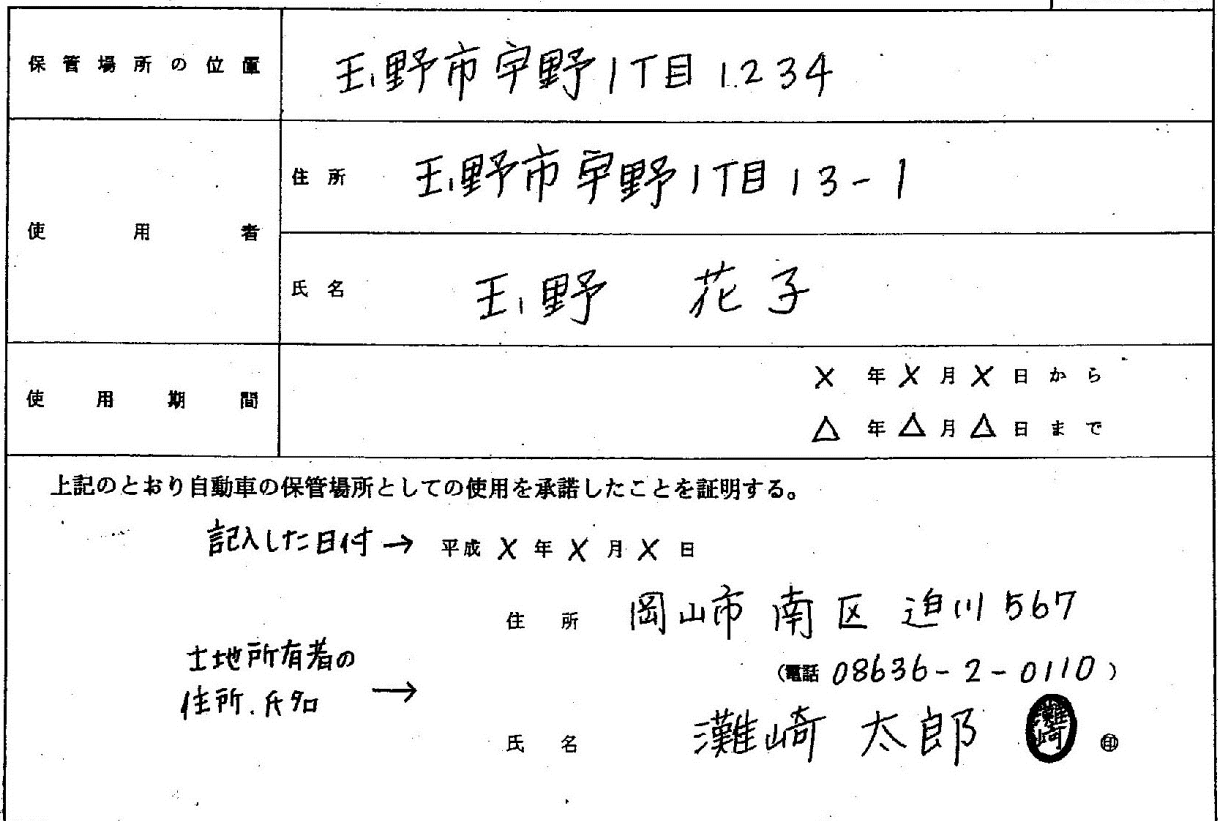 保管場所の位置 玉野市宇野1丁目1234
使用者 住所 玉野市宇野1丁目13-1
氏名 玉野 花子
使用期間 X年X月X日から
△年△月△日まで
上記のとおり自動車の保管場所としての使用を承諾したことを証明する。
記入した日付→ 平成X年X月X日
住所 岡山市南区迫川567
土地所有者の
住所.氏名 →
(電話 08636-2-0110)
氏名 灘崎 太郎 灘崎 ㊞